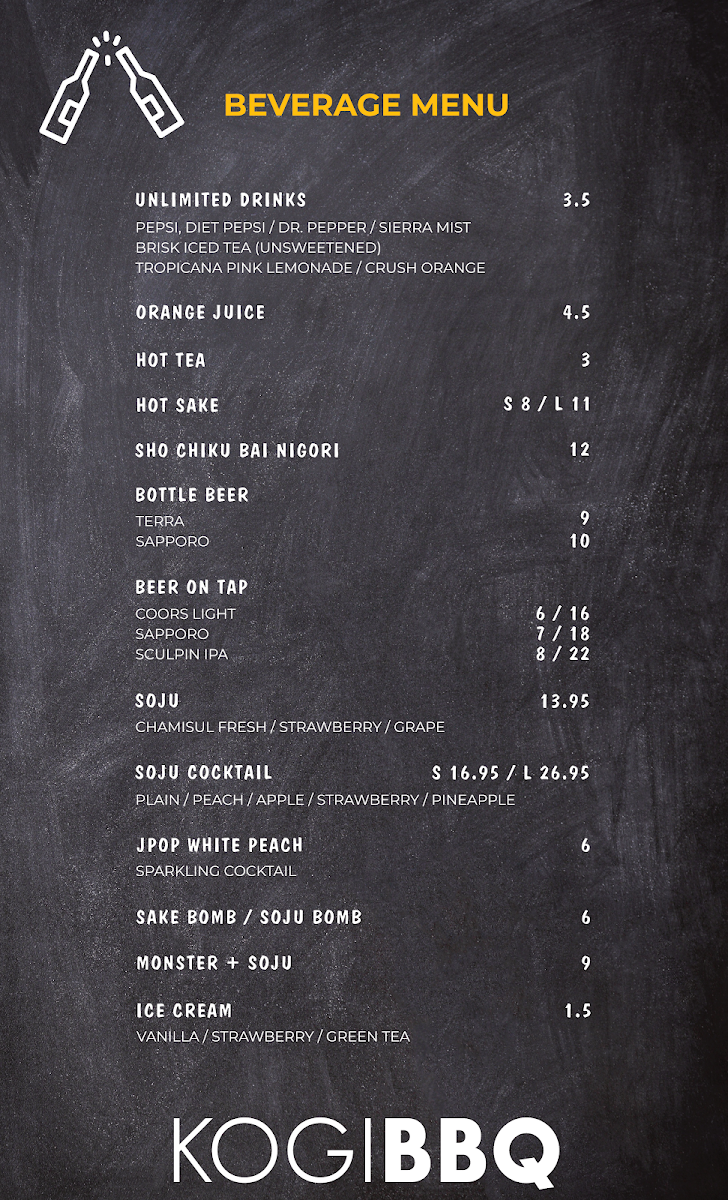 BEVERAGE MENU
UNLIMITED DRINKS 3.5
PEPSI, DIET PEPSI / DR. PEPPER / SIERRA MIST
BRISK ICED TEA (UNSWEETENED)
TROPICANA PINK LEMONADE / CRUSH ORANGE
ORANGE JUICE 4.5
HOT TEA 3
HOT SAKE S 8 / L 11
SHO CHIKU BAI NIGORI 12
BOTTLE BEER
TERRA 9
SAPPORO 10
BEER ON TAP
COORS LIGHT 6 / 16
SAPPORO 7 / 18
SCULPIN IPA 8 / 22
SOJU 13.95
CHAMISUL FRESH / STRAWBERRY / GRAPE
SOJU COCKTAIL S 16.95 / L 26.95
PLAIN / PEACH / APPLE / STRAWBERRY / PINEAPPLE
JPOP WHITE PEACH 6
SPARKLING COCKTAIL
SAKE BOMB / SOJU BOMB 6
MONSTER + SOJU 9
ICE CREAM 1.5
VANILLA / STRAWBERRY / GREEN TEA
KOGIBBQ